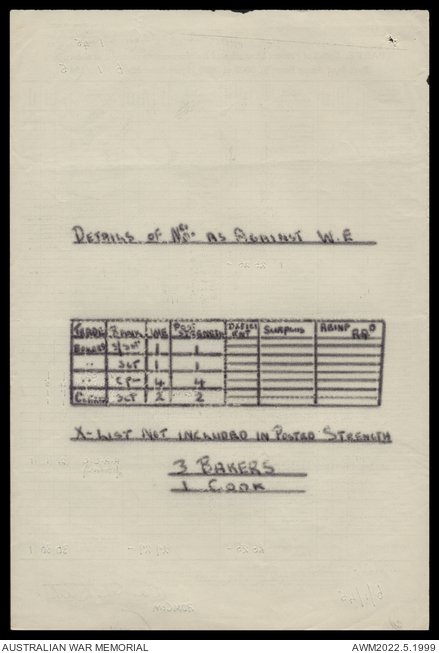 DETAILS OF NOS. AS AGAINST W.E
TRADE RANK W.E POST STRENGTH DEFICI ENT SURPLUS REINF RQD
BAKERS S/SGT 1 1
" SGT 1 1
" CPL 4 4
SGT 2 2
X-LIST NOT INCLUDED IN POSTED STRENGTH
3 BAKERS
1 COOK
AUSTRALIAN WAR MEMORIAL AWM2022.5.1999